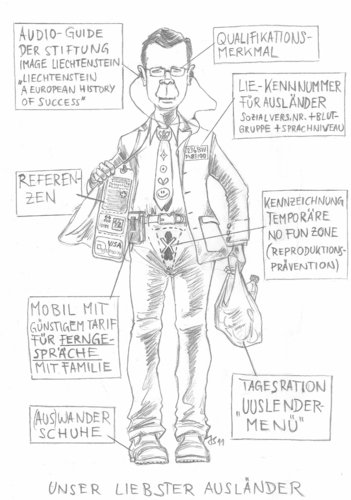 AUDIO-GUIDE
DER STIFTUNG
IMAGE LIECHTENSTEIN
„LIECHTENSTEIN
A EUROPEAN HISTORY
OF SUCCESS“
QUALIFIKATIONS-
MERKMAL
LIE-KENNNUMMER
FÜR AUSLÄNDER
SOZIALVERS.NR.+BLUT-
GRUPPE + SPRACHNIVEAU
REFEREN-
ZEN
VISA
KENNZEICHNUNG
TEMPORÄRE
NO FUN ZONE
(REPRODUKTIONS-
PRÄVENTION)
MOBIL MIT
GÜNSTIGEM TARIF
FÜR FERNGE-
SPRÄCHE
MIT FAMILIE
TAGESRATION
„UUSLENDER-
MENÜ“
(AUS)WANDER
SCHUHE
UNSER LIEBSTER AUSLÄNDER